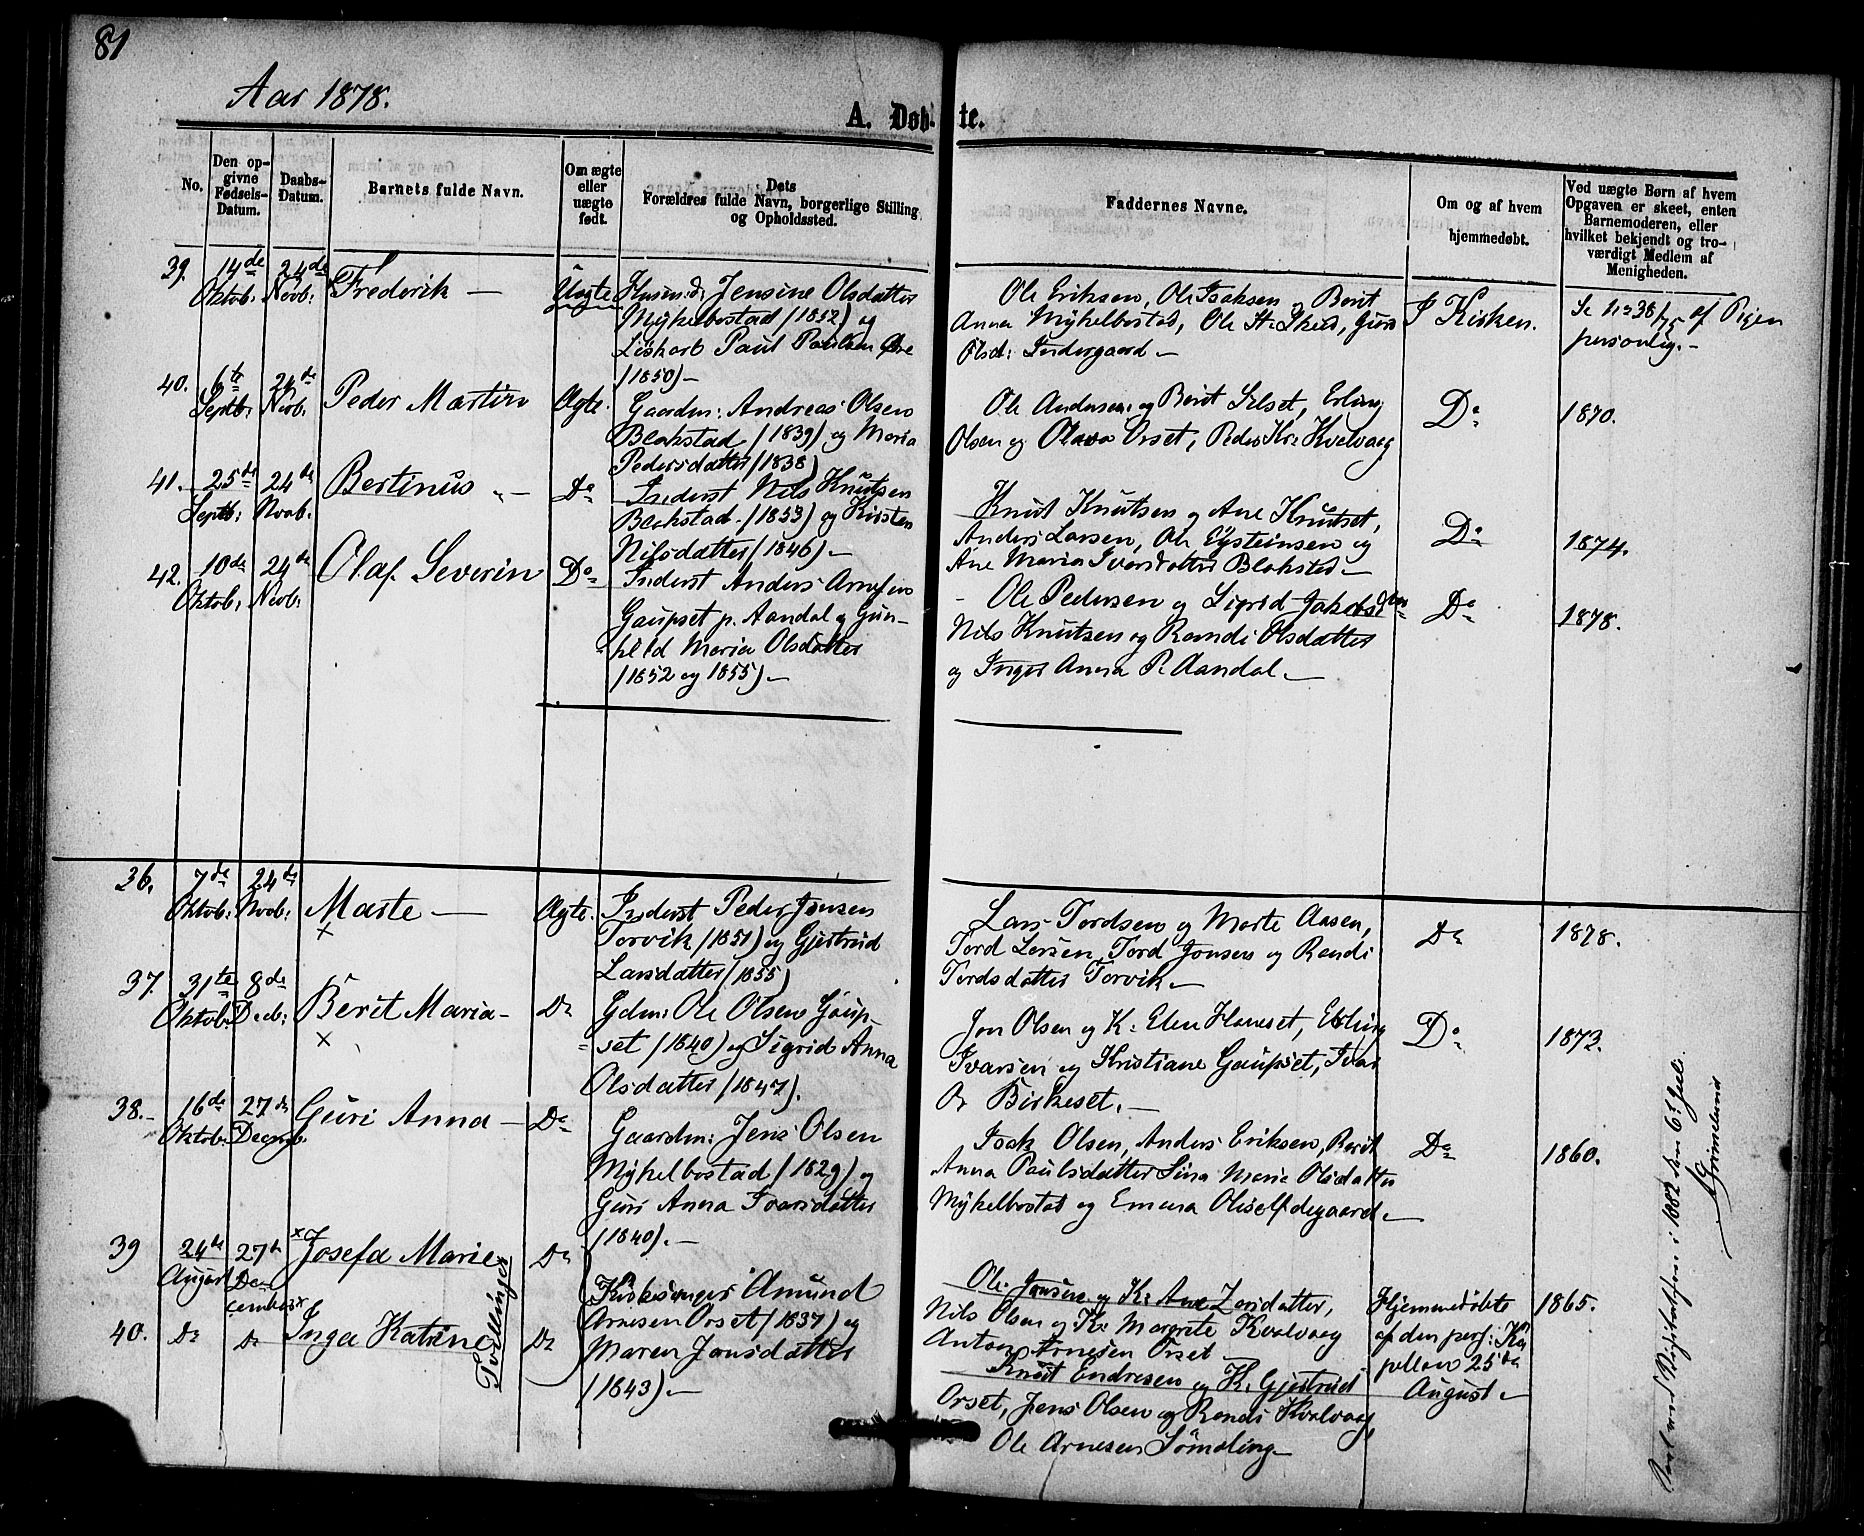 81
Aar 1878.
A. Døb- te.
No.
Den op-
givne
Fødsels-
Datum.
Daabs-
Datum.
Barnets fulde Navn.
Om ægte
eller
uægte
født.
Dets
Forældres fulde Navn, borgerlige Stilling
og Opholdssted.
Faddernes Navne.
Om og af hvem
hjemmedøbt.
Ved uægte Børn af hvem
Opgaven er skeet, enten
Barnemoderen, eller
hvilket bekjendt og tro-
værdigt Medlem af
Menigheden.
39.
14de
Oktob:
24de
Novb:
Frederik —
Uægte
Jensine Olsdatter
Mykelbostad (1852) og
Paul Paulsen
(1850) —
Ole Eriksen, Ole Isaksen og Berit
Anna Mykelbostad, Ole Guri
Olsd: Indergaard —
I Kirken.
af Pigen
personlig. —
40.
6te
Septb:
24de
Novb.
Peder Martin
Ægte.
Gaardm: Andreas Olsen
Blakstad (1839) og Maria
Pedersdatter (1838)
Ole Andersen og Berit Silset, Erling
Olsen og Orset, Peder Kr: Kvalvaag
Do
1870.
41.
25de
Septb:
24de
Novb.
Bertinus —
Do
Inderst Nils Knutsen
Blakstad. (1853) og Kirsten
Nilsdatter (1846) —
Knut Knutsen og Ane Knutset,
Anders Larsen, Ole Eysteinsen og
Ane Maria Ivarsdatter Blakstad —
Do
1874.
42.
10de
Oktob:
24de
Novb:
Olaf Severin
Do
Inderst Anders Arnesen
Gaupset p. Aandal og Gun-
hild Maria Olsdatter
(1852 og 1855) —
Ole Pedersen og Sigrid Jakobsdtr
Nils Knutsen og Randi Olsdatter
og Inger Anna P. Aandal. —
Do
1878.
36.
7de
Oktob:
24de
Novb:
Marte —
x
Ægte.
Inderst Peder Jonsen
Torvik (1851) og Gjertrud
Larsdatter (1855)
Lars Tordsen og Marte Aasen,
Tord Larsen, Tord Jonsen og Randi
Tordsdatter Torvik —
Do
1878.
37.
31te
Oktob:
8de
Decb:
Berit Maria —
x
Do
Gdm: Ole Olsen Gaup-
set (1840) og Sigrid Anna
Olsdatter (1847).
Jon Olsen og K: Elen Haneset, Erling
Ivarsen og Kristiane Gaupset, Ivar
O. Birkeset. —
Do
1873.
38. —
16de
Oktob:
27de
Decemb.
Guri Anna —
Do
Gaardm: Jens Olsen
Mykelbostad (1829) og
Guri Anna Ivarsdatter
(1840). —
Isak Olsen, Anders Eriksen, Berit
Anna Paulsdatter Sina Marie Olsdatter
Mykelbostad og Emma
Do
1860.
39
24de
August
27de
De-
cember
x Josefa Marie
Do
Kirkesanger Amund
Arnesen Orset (1837) og
Maren Jonsdatter
(1843). —
Ole Jonsen og K: Ane Larsdatter,
Nils Olsen og K: Margrete Kvalvaag
Anton Arnesen Orset —
Hjemmedøbte
af den pers: Ka-
pellan 25de
August —
1865.
40.
Do
Do
x Inga Katrine
Tvillinger
Do
Knut Endresen og K: Gjertrud
Orset, Jens Olsen og Randi Kvalvaag,
Ole Arnesen Sømoling —
1882 den 6te Juli.
Grimelund